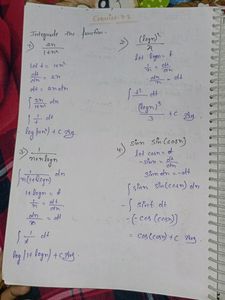 Exercise 7.2
Integrate the function.
1) 2x/1+x²
Let t = 1+x²
dt/dx = 2x
dt = 2x dx
∫ 2x/1+x² dx
∫ 1/t dt
log(1+x²) + C
2) (log x)²/x
let log x = t
1/x = dt/dx
dx/x = dt
∫ t² dt
(log x)³/3 + C
3) 1/x+x log x
∫ 1/x(1+log x) dx
1+log x = t
1/x = dt/dx
dx/x = dt
∫ 1/t dt
log |1+log x| + C
4) sin x sin (cos x)
let cos x = t
-sin x = dt/dx
sin x dx = -dt
∫ sin x sin (cos x) dx
- ∫ sin t dt
- (- cos (cos x))
= cos (cos x) + C